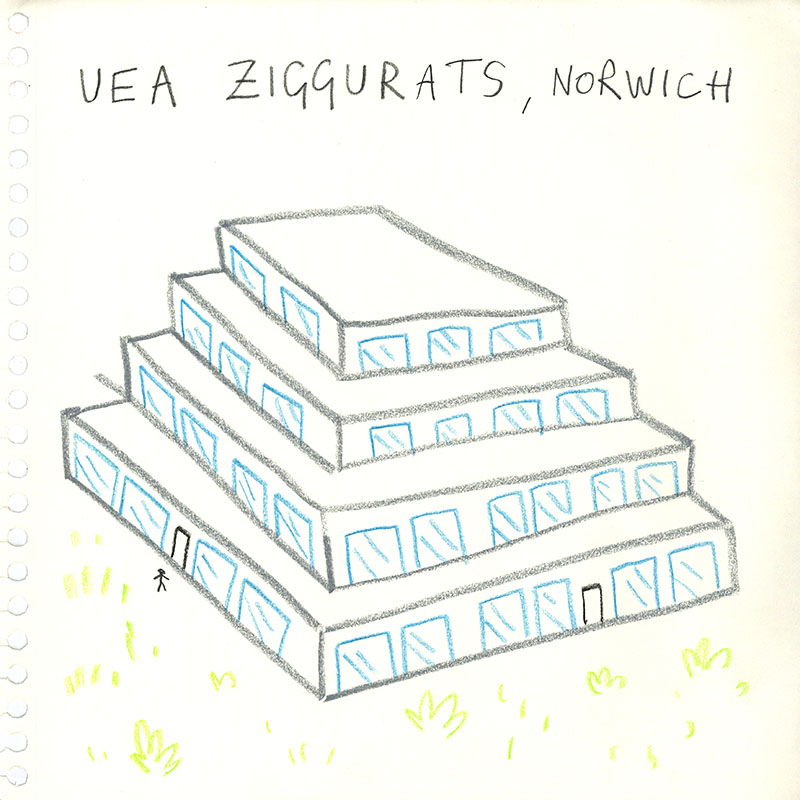 UEA ZIGGURATS, NORWICH